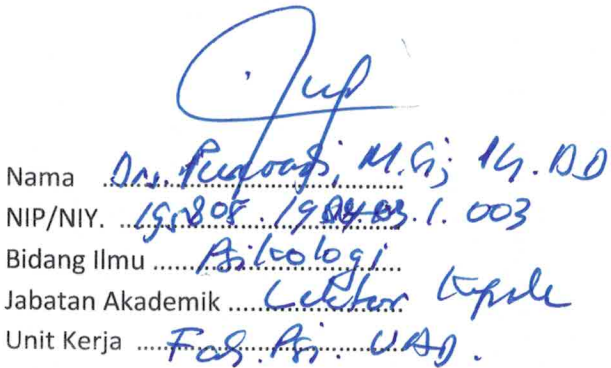 Nama Drs. Purwadi, M.Si; Ph.D
NIP/NIY. 1003
Bidang Ilmu Psikologi
Jabatan Akademik Lektor Kepala
Unit Kerja Fak. Psi. UAD.